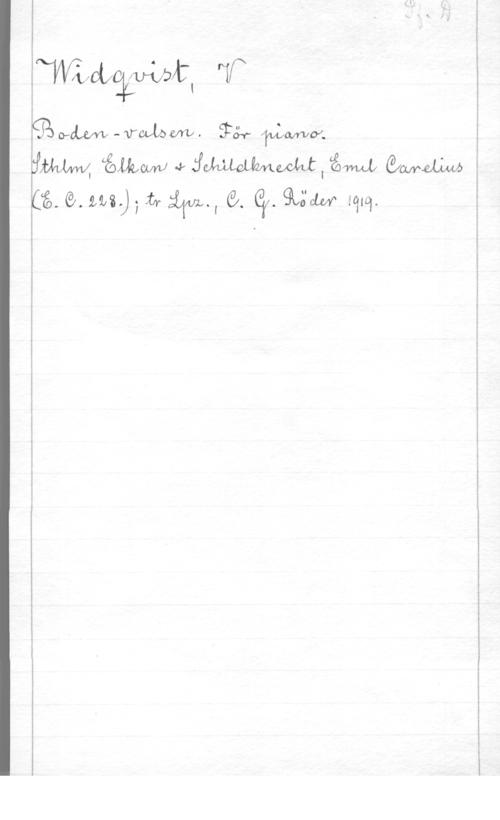 Pf. A
Widqvist, V
Boden-valsen. För piano.
Sthlm, Elkan & Schildknecht, Emil Carelius
(E. C. 228.); tr Lpz., C. G. Röder 1919.